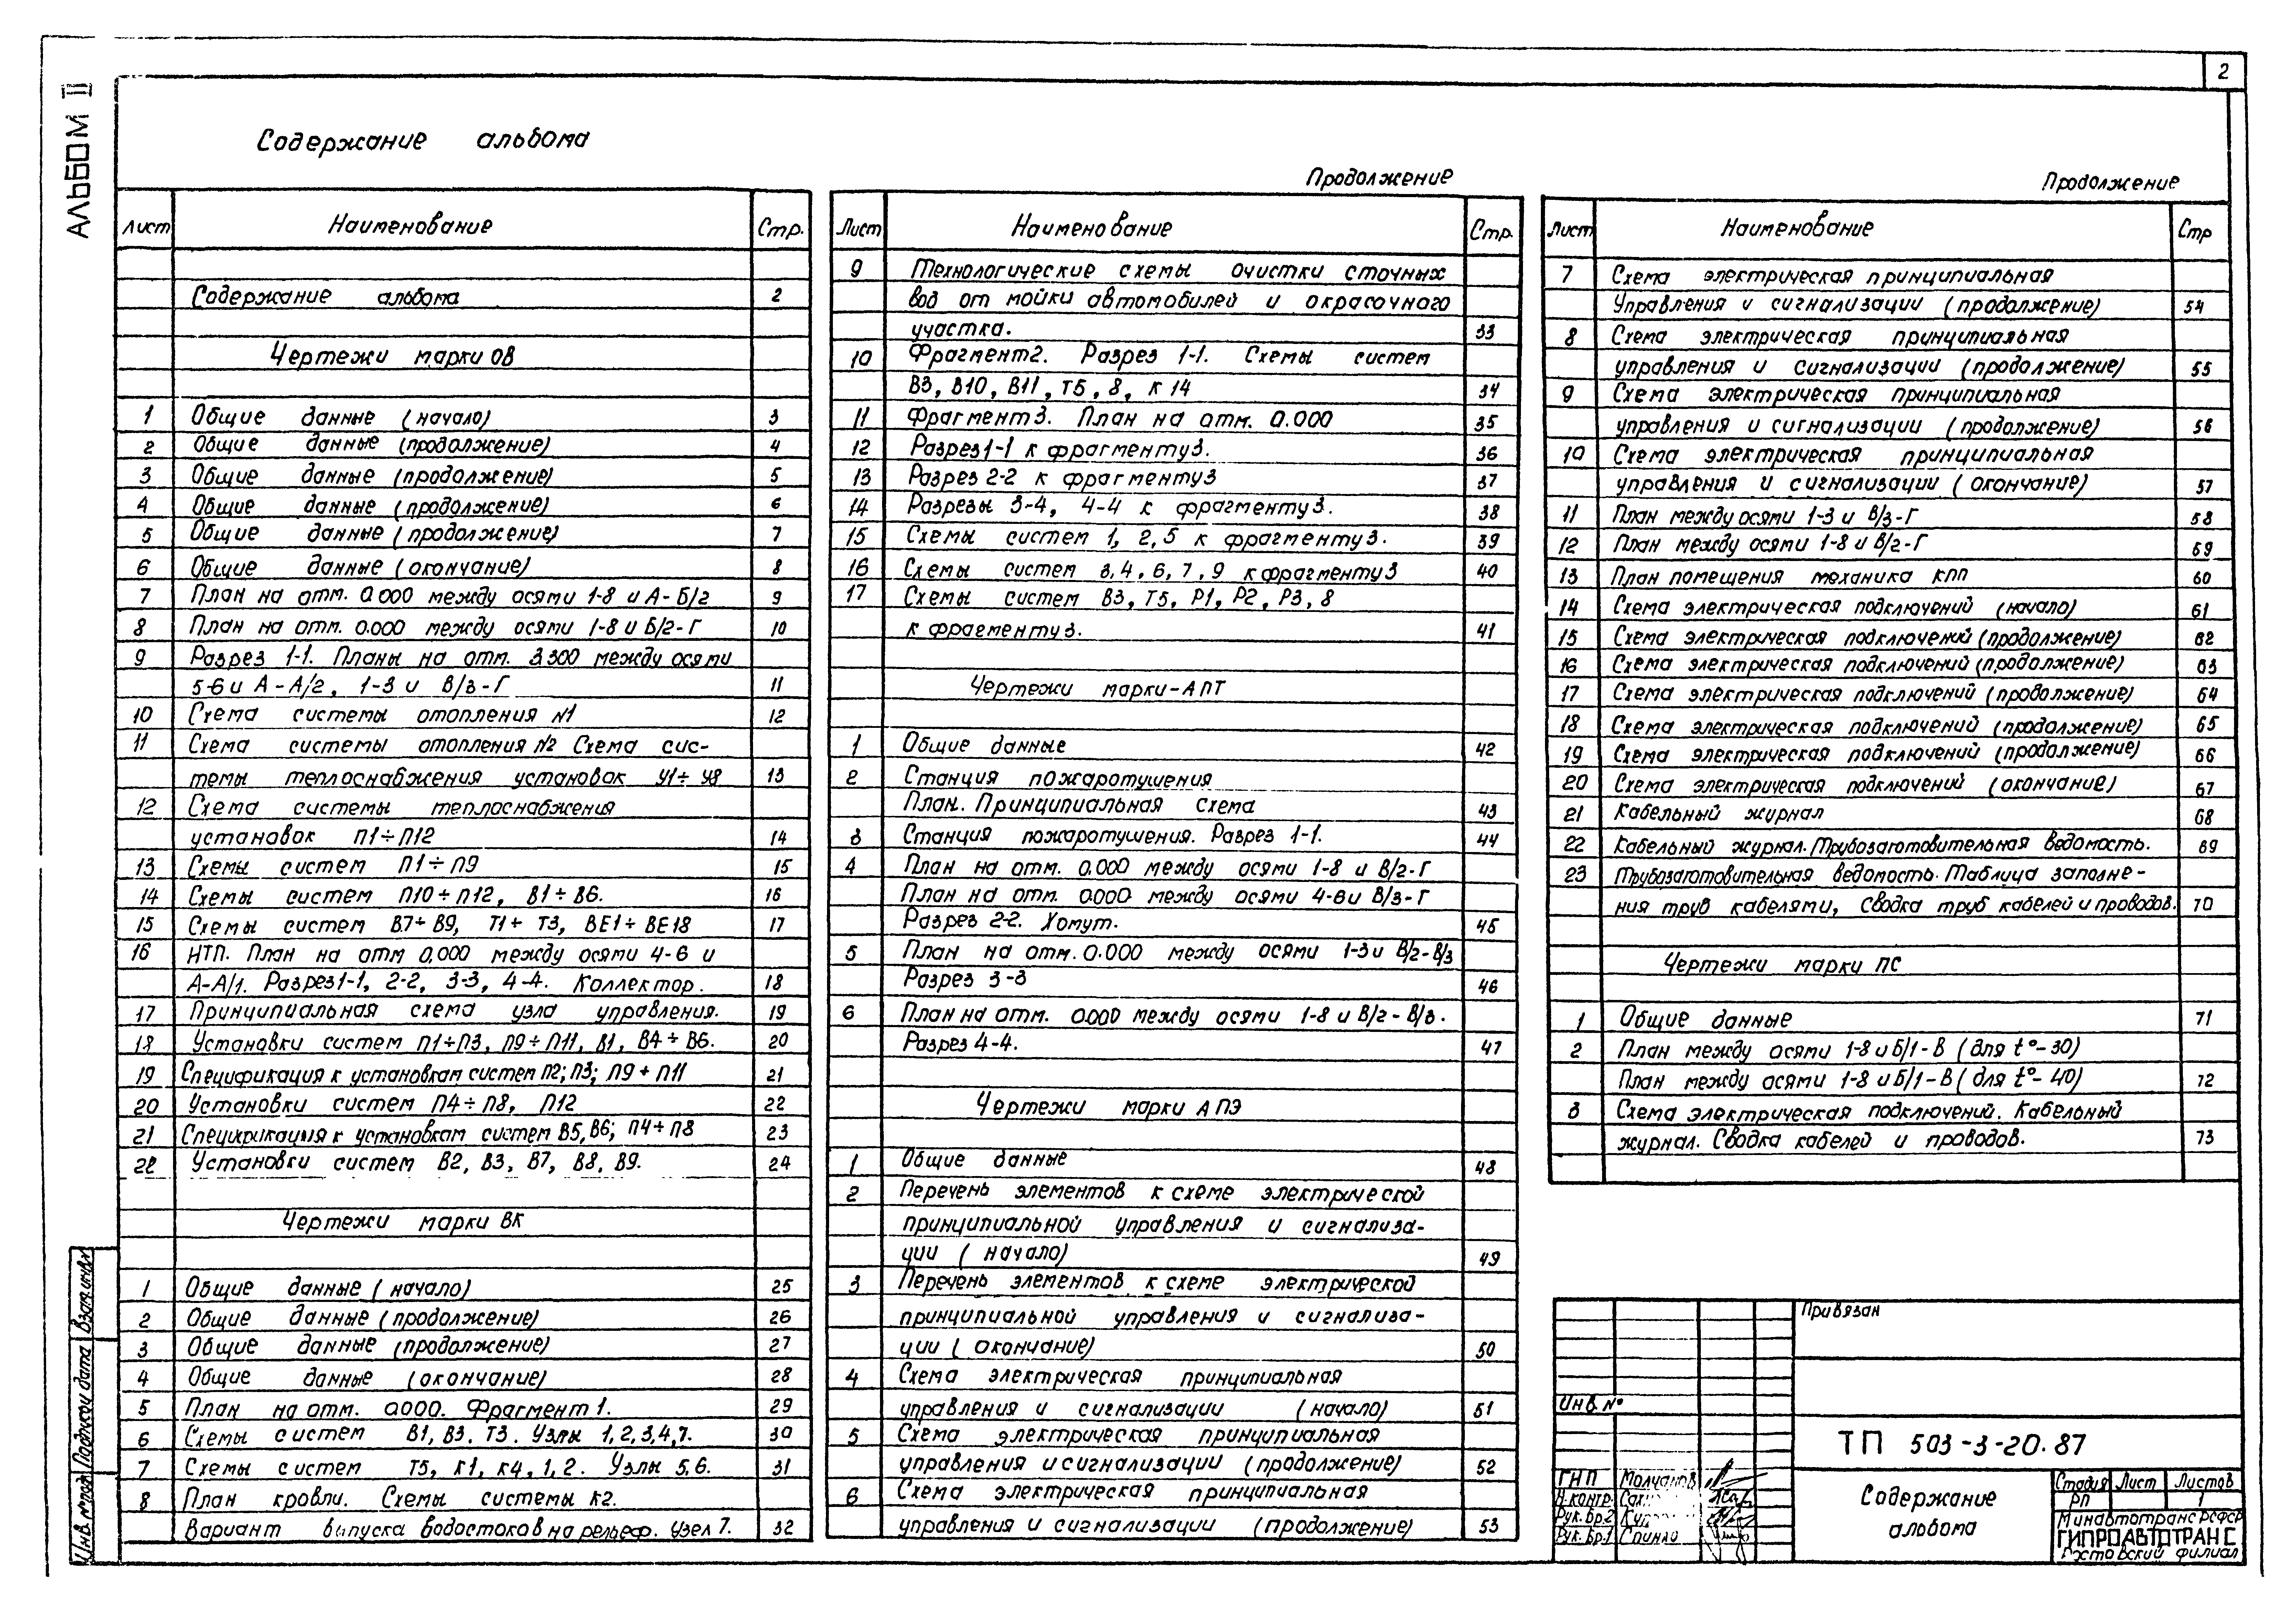 2
АЛЬБОМ II
Содержание альбома
Лист Наименование Стр.
Содержание альбома 2
Чертежи марки ОВ
1 Общие данные (начало) 3
2 Общие данные (продолжение) 4
3 Общие данные (продолжение) 5
4 Общие данные (продолжение) 6
5 Общие данные (продолжение) 7
6 Общие данные (окончание) 8
7 План на отм. 0.000 между осями 1-8 и А-Б/2 9
8 План на отм. 0.000 между осями 1-8 и Б/2-Г 10
9 Разрез 1-1. Планы на отм. 3.300 между осями
5-6 и А-А/2, 1-3 и В/3-Г 11
10 Схема системы отопления №1 12
11 Схема системы отопления №2 Схема сис-
темы теплоснабжения установок У1÷У8 13
12 Схема системы теплоснабжения
установок П1÷П12 14
13 Схемы систем П1÷П9 15
14 Схемы систем П10÷П12, В1÷В6. 16
15 Схемы систем В7÷В9, Т1÷Т3, ВЕ1÷ВЕ18 17
16 НТП. План на отм 0,000 между осями 4-6 и
А-А/1. Разрез 1-1, 2-2, 3-3, 4-4. Коллектор. 18
17 Принципиальная схема узла управления. 19
18 Установки систем П1÷П3, П9÷П11, В1, В4÷В6. 20
19 Спецификация к установкам систем П2; П3; П9÷П11 21
20 Установки систем П4÷П8, П12 22
21 Спецификация к установкам систем В5, В6; П4÷П8 23
22 Установки систем В2, В3, В7, В8, В9. 24
Чертежи марки ВК
1 Общие данные (начало) 25
2 Общие данные (продолжение) 26
3 Общие данные (продолжение) 27
4 Общие данные (окончание) 28
5 План на отм. 0.000. Фрагмент 1. 29
6 Схемы систем В1, В3. Т3. Узлы 1,2,3,4,7. 30
7 Схемы систем Т5, К1, К4, 1, 2. Узлы 5,6. 31
8 План кровли. Схемы системы К2.
Вариант выпуска водостоков на рельеф. Узел 7. 32
Продолжение
Лист Наименование Стр.
9 Технологические схемы очистки сточных
вод от мойки автомобилей и окрасочного
участка. 33
10 Фрагмент 2. Разрез 1-1. Схемы систем
В3, В10, В11, Т5, 8, К 14 34
11 Фрагмент 3. План на отм. 0.000 35
12 Разрез 1-1 к фрагменту 3. 36
13 Разрез 2-2 к фрагменту 3 37
14 Разрезы 3-4, 4-4 к фрагменту 3. 38
15 Схемы систем 1, 2, 5 к фрагменту 3. 39
16 Схемы систем 3, 4, 6, 7, 9 к фрагменту 3 40
17 Схемы систем В3, Т5, Р1, Р2, Р3, 8
к фрагменту 3. 41
Чертежи марки-АПТ
1 Общие данные 42
2 Станция пожаротушения
План. Принципиальная схема 43
3 Станция пожаротушения. Разрез 1-1. 44
4 План на отм. 0.000 между осями 1-8 и В/2-Г
План на отм. 0.000 между осями 4-8 и В/3-Г
Разрез 2-2. Хомут. 45
5 План на отм. 0.000 между осями 1-3 и В/2-В/3
Разрез 3-3 46
6 План на отм. 0.000 между осями 1-8 и В/2-В/3.
Разрез 4-4. 47
Чертежи марки АПЭ
1 Общие данные 48
2 Перечень элементов к схеме электрической
принципиальной управления и сигнализа-
ции (начало) 49
3 Перечень элементов к схеме электрической
принципиальной управления и сигнализа-
ции (окончание) 50
4 Схема электрическая принципиальная
управления и сигнализации (начало) 51
5 Схема электрическая принципиальная
управления и сигнализации (продолжение) 52
6 Схема электрическая принципиальная
управления и сигнализации (продолжение) 53
Продолжение
Лист Наименование Стр
7 Схема электрическая принципиальная
Управления и сигнализации (продолжение) 54
8 Схема электрическая принципиальная
управления и сигнализации (продолжение) 55
9 Схема электрическая принципиальная
управления и сигнализации (продолжение) 56
10 Схема электрическая принципиальная
управления и сигнализации (окончание) 57
11 План между осями 1-3 и В/3-Г 58
12 План между осями 1-8 и В/2-Г 59
13 План помещения механика КПП 60
14 Схема электрическая подключений (начало) 61
15 Схема электрическая подключений (продолжение) 62
16 Схема электрическая подключений (продолжение) 63
17 Схема электрическая подключений (продолжение) 64
18 Схема электрическая подключений (продолжение) 65
19 Схема электрическая подключений (продолжение) 66
20 Схема электрическая подключений (окончание) 67
21 Кабельный журнал 68
22 Кабельный журнал. Трубозаготовительная ведомость. 69
23 Трубозаготовительная ведомость. Таблица заполне-
ния труб кабелями, Сводка труб кабелей и проводов. 70
Чертежи марки ПС
1 Общие данные 71
2 План между осями 1-8 и Б/1-В (для t°-30)
План между осями 1-8 и Б/1-В (для t°-40) 72
3 Схема электрическая подключений. Кабельный
журнал. Сводка кабелей и проводов. 73
Привязан
Инв. №
ТП 503-3-20.87
ГНП Молчанов
Н.контр.
Рук.бр.2
Рук.бр.1
Содержание
альбома
Стадия Лист Листов
РП 1
Минавтотранс РСФСР
ГИПРОАВТОТРАНС
Ростовский филиал
Взам.инв.№
Подпись и дата
Инв.№ подл.